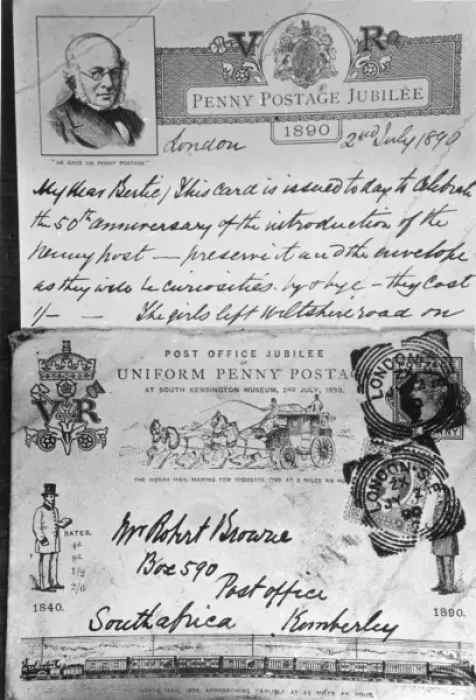 V R
PENNY POSTAGE JUBILEE
1890
"HE GAVE US PENNY POSTAGE"
London 2nd July 1890
My dear Bertie, This card is issued to day to celebrate
the 50th anniversary of the introduction of the
penny post — preserve it and the envelope
as they will be curiosities by & bye — they cost
1/- - The girls left Wiltshire road on
POST OFFICE JUBILEE
OF
UNIFORM PENNY POSTA
AT SOUTH KENSINGTON MUSEUM, 2ND JULY, 1890.
V R
LONDON
PENNY
THE NORTH MAIL MAKING FOR HIGHGATE 1790 AT 8 MILES AN HO
LONDON S
90
RATES.
4d
8d
1/9
2/6
1840.
Mr Robert Browne
Box 590
Post office
South africa Kimberley
1890.
NORTH MAIL 1890, APPROACHING CARLISLE AT 48 MILES AN HOUR